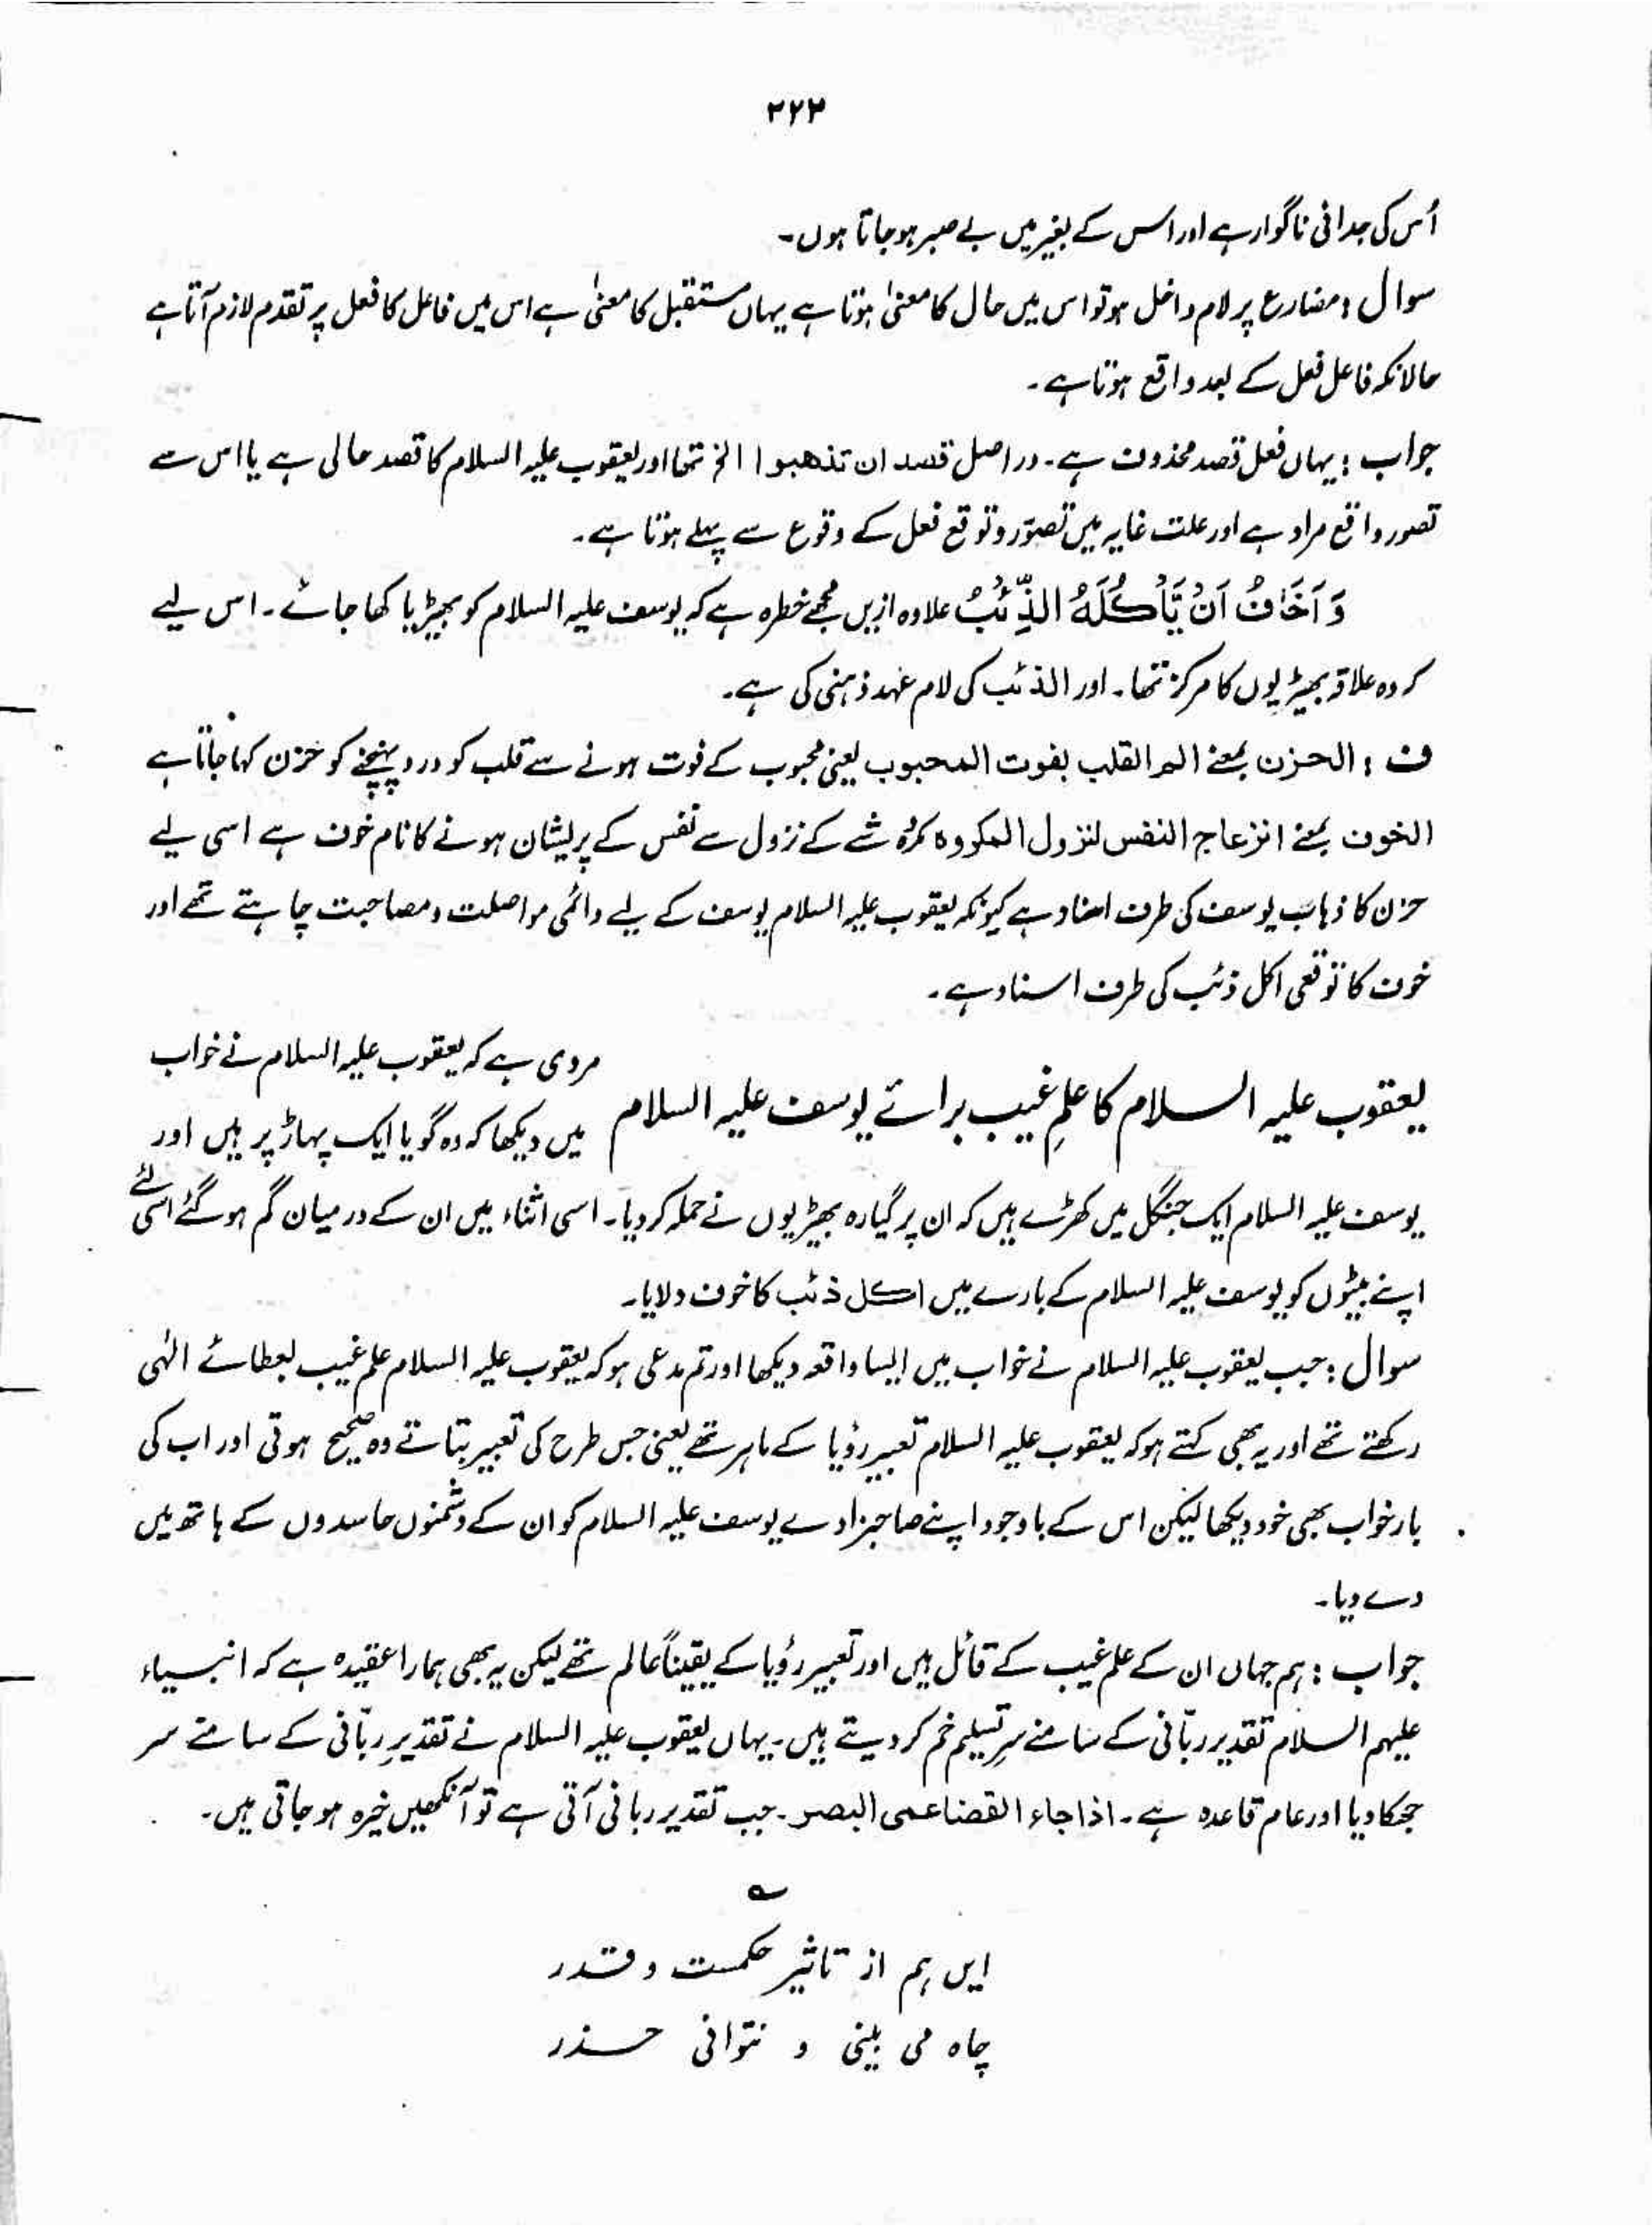 ۲۲۳
اُس کی جدائی ناگوار ہے اور اس کے بغیر میں بے صبر ہو جاتا ہوں۔
سوال : مضارع پر لام داخل ہو تو اس میں حال کا معنیٰ ہوتا ہے یہاں مستقبل کا معنیٰ ہے اس میں فاعل کا فعل پر تقدم لازم آتا ہے
حالانکہ فاعل فعل کے بعد واقع ہوتا ہے۔
جواب : یہاں فعل قصد محذوف ہے۔ دراصل قصد ان تذھبوا الخ تھا اور یعقوب علیہ السلام کا قصد حالی ہے یا اس سے
تصور واقع مراد ہے اور علت غایہ میں تصوّر وتوقع فعل کے وقوع سے پہلے ہوتا ہے۔
وَ اَخَافُ اَنْ یَّاْکُلَہُ الذِّئْبُ علاوہ ازیں مجھے خطرہ ہے کہ یوسف علیہ السلام کو بھیڑیا کھا جائے۔ اس لیے
کہ وہ علاقہ بھیڑیوں کا مرکز تھا۔ اور الذئب کی لام عہد ذہنی کی ہے۔
ف : الحزن بمعنے الم القلب بفوت المحبوب یعنی محبوب کے فوت ہونے سے قلب کو درد پہنچنے کو حزن کہا جاتا ہے
الخوف بمعنے انزعاج النفس لنزول المکروہ مکروہ شے کے نزول سے نفس کے پریشان ہونے کا نام خوف ہے اسی لیے
حزن کا ذہاب یوسف کی طرف اسناد ہے کیونکہ یعقوب علیہ السلام یوسف کے لیے دائمی مواصلت ومصاحبت چاہتے تھے اور
خوف کا توقعی اکل ذئب کی طرف اسناد ہے۔
یعقوب علیہ السلام کا علمِ غیب برائے یوسف علیہ السلام
مروی ہے کہ یعقوب علیہ السلام نے خواب
میں دیکھا کہ وہ گویا ایک پہاڑ پر ہیں اور
یوسف علیہ السلام ایک جنگل میں کھڑے ہیں کہ ان پر گیارہ بھیڑیوں نے حملہ کر دیا۔ اسی اثناء میں ان کے درمیان گم ہو گئے اسی لئے
اپنے بیٹوں کو یوسف علیہ السلام کے بارے میں اکل ذئب کا خوف دلایا۔
سوال : جب یعقوب علیہ السلام نے خواب میں ایسا واقعہ دیکھا اور تم مدعی ہو کہ یعقوب علیہ السلام علم غیب بعطائے الٰہی
رکھتے تھے اور یہ بھی کہتے ہو کہ یعقوب علیہ السلام تعبیر رؤیا کے ماہر تھے یعنی جس طرح کی تعبیر بتاتے وہ صحیح ہوتی اور اب کی
بار خواب بھی خود دیکھا لیکن اس کے باوجود اپنے صاحبزادے یوسف علیہ السلام کو ان کے دشمنوں حاسدوں کے ہاتھ میں
دے دیا۔
جواب : ہم جہاں ان کے علم غیب کے قائل ہیں اور تعبیر رؤیا کے یقیناً عالم تھے لیکن یہ بھی ہمارا عقیدہ ہے کہ انبیاء
علیہم السلام تقدیر ربّانی کے سامنے سرِ تسلیم خم کر دیتے ہیں۔ یہاں یعقوب علیہ السلام نے تقدیرِ ربّانی کے سامنے سر
جھکا دیا اور عام قاعدہ ہے۔ اذا جاء القضا عمی البصر۔ جب تقدیر ربانی آتی ہے تو آنکھیں خیرہ ہو جاتی ہیں۔
؎
ایں ہم از تاثیر حکمست و قدر
چاہ می بینی و نتوانی حذر